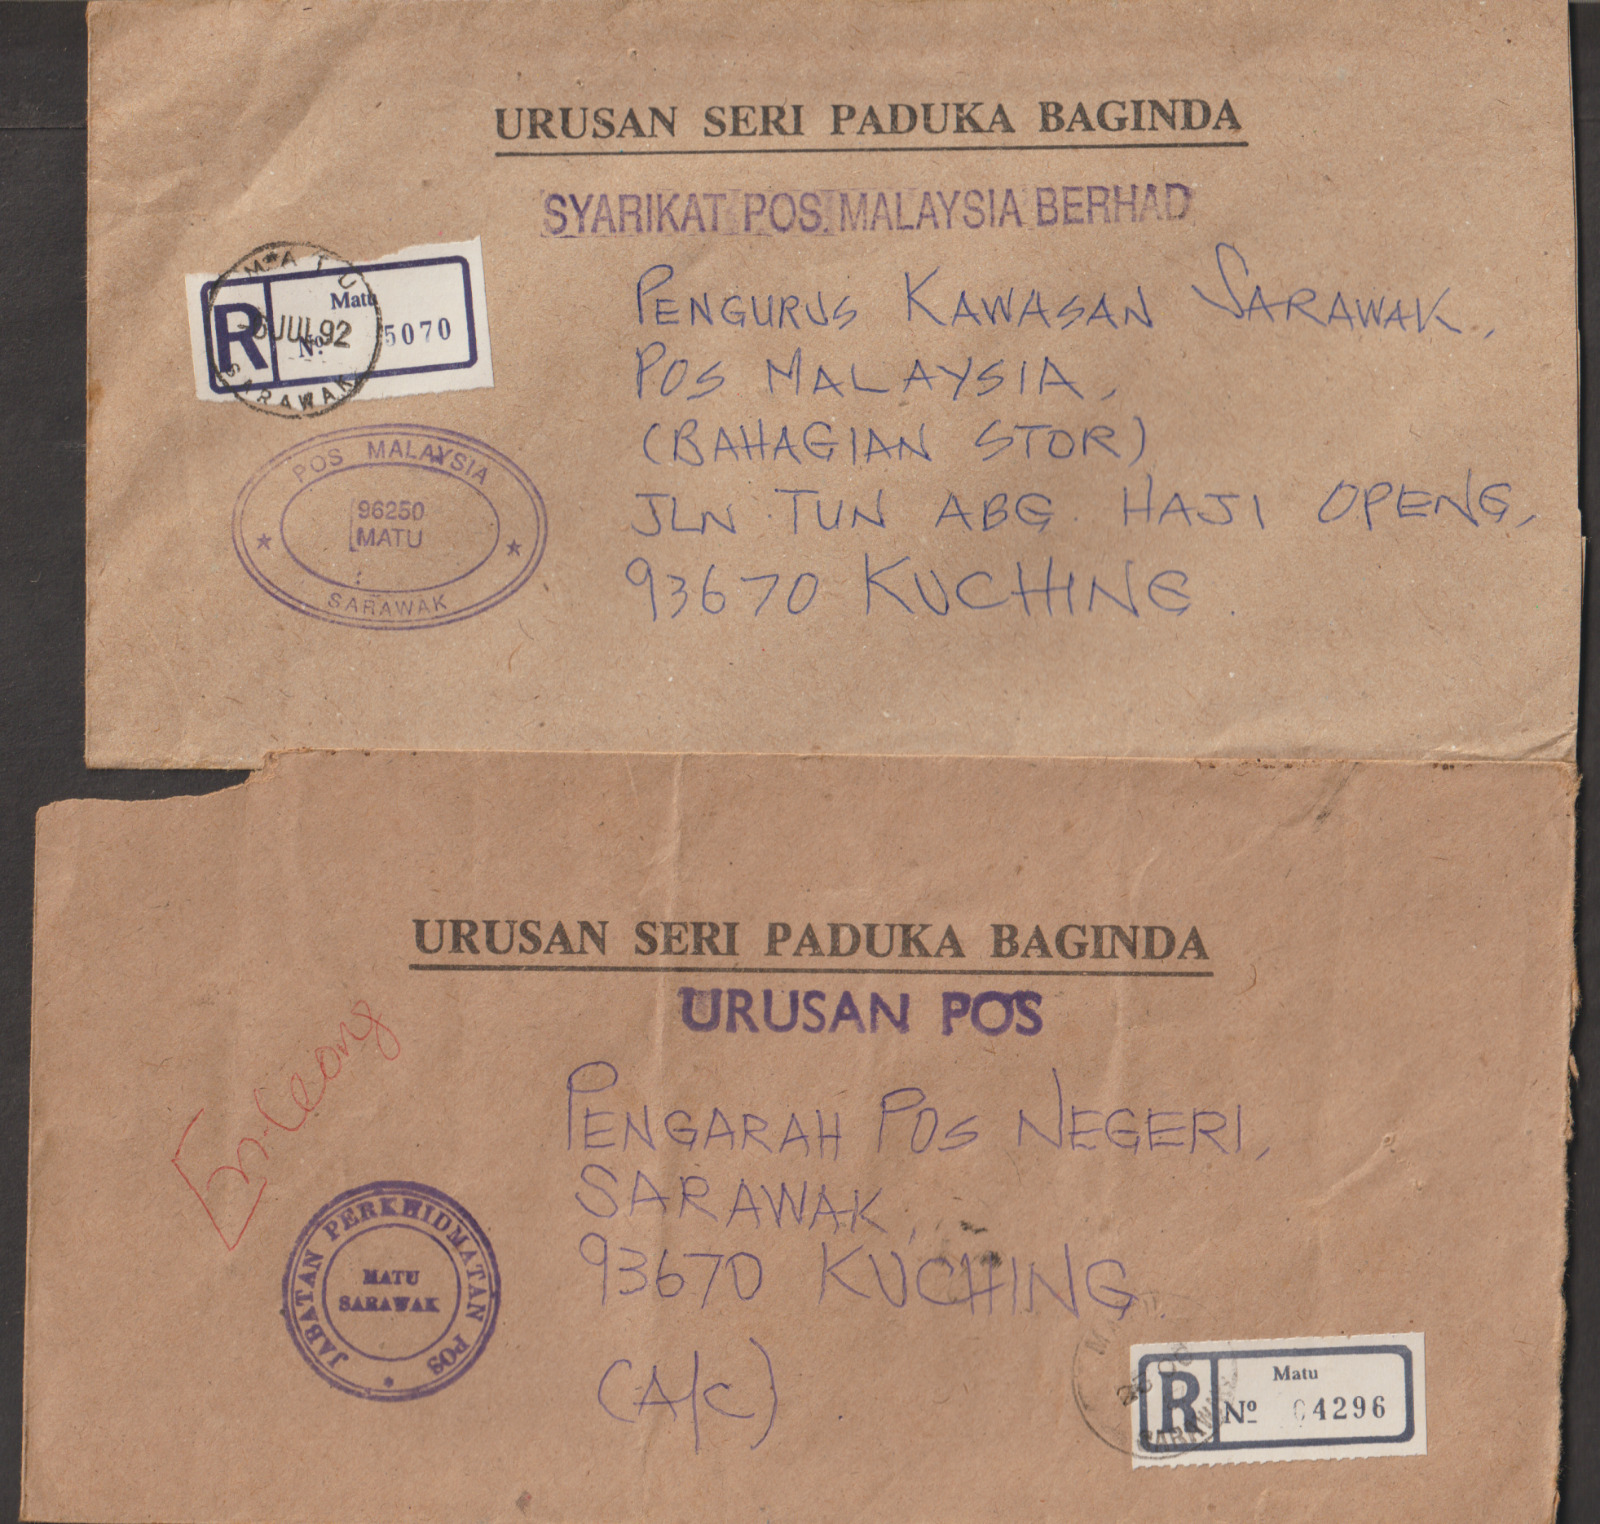 URUSAN SERI PADUKA BAGINDA
SYARIKAT POS MALAYSIA BERHAD
MATU
JUL 92
SARAWAK
R
Matu
Nº 5070
PENGURUS KAWASAN SARAWAK,
POS MALAYSIA,
(BAHAGIAN STOR)
JLN. TUN ABG. HAJI OPENG,
93670 KUCHING.
POS MALAYSIA
96250
MATU
SARAWAK
URUSAN SERI PADUKA BAGINDA
URUSAN POS
PENGARAH POS NEGERI,
SARAWAK,
93670 KUCHING.
(A/C).
JABATAN PERKHIDMATAN POS
MATU
SARAWAK
R
Matu
Nº 04296